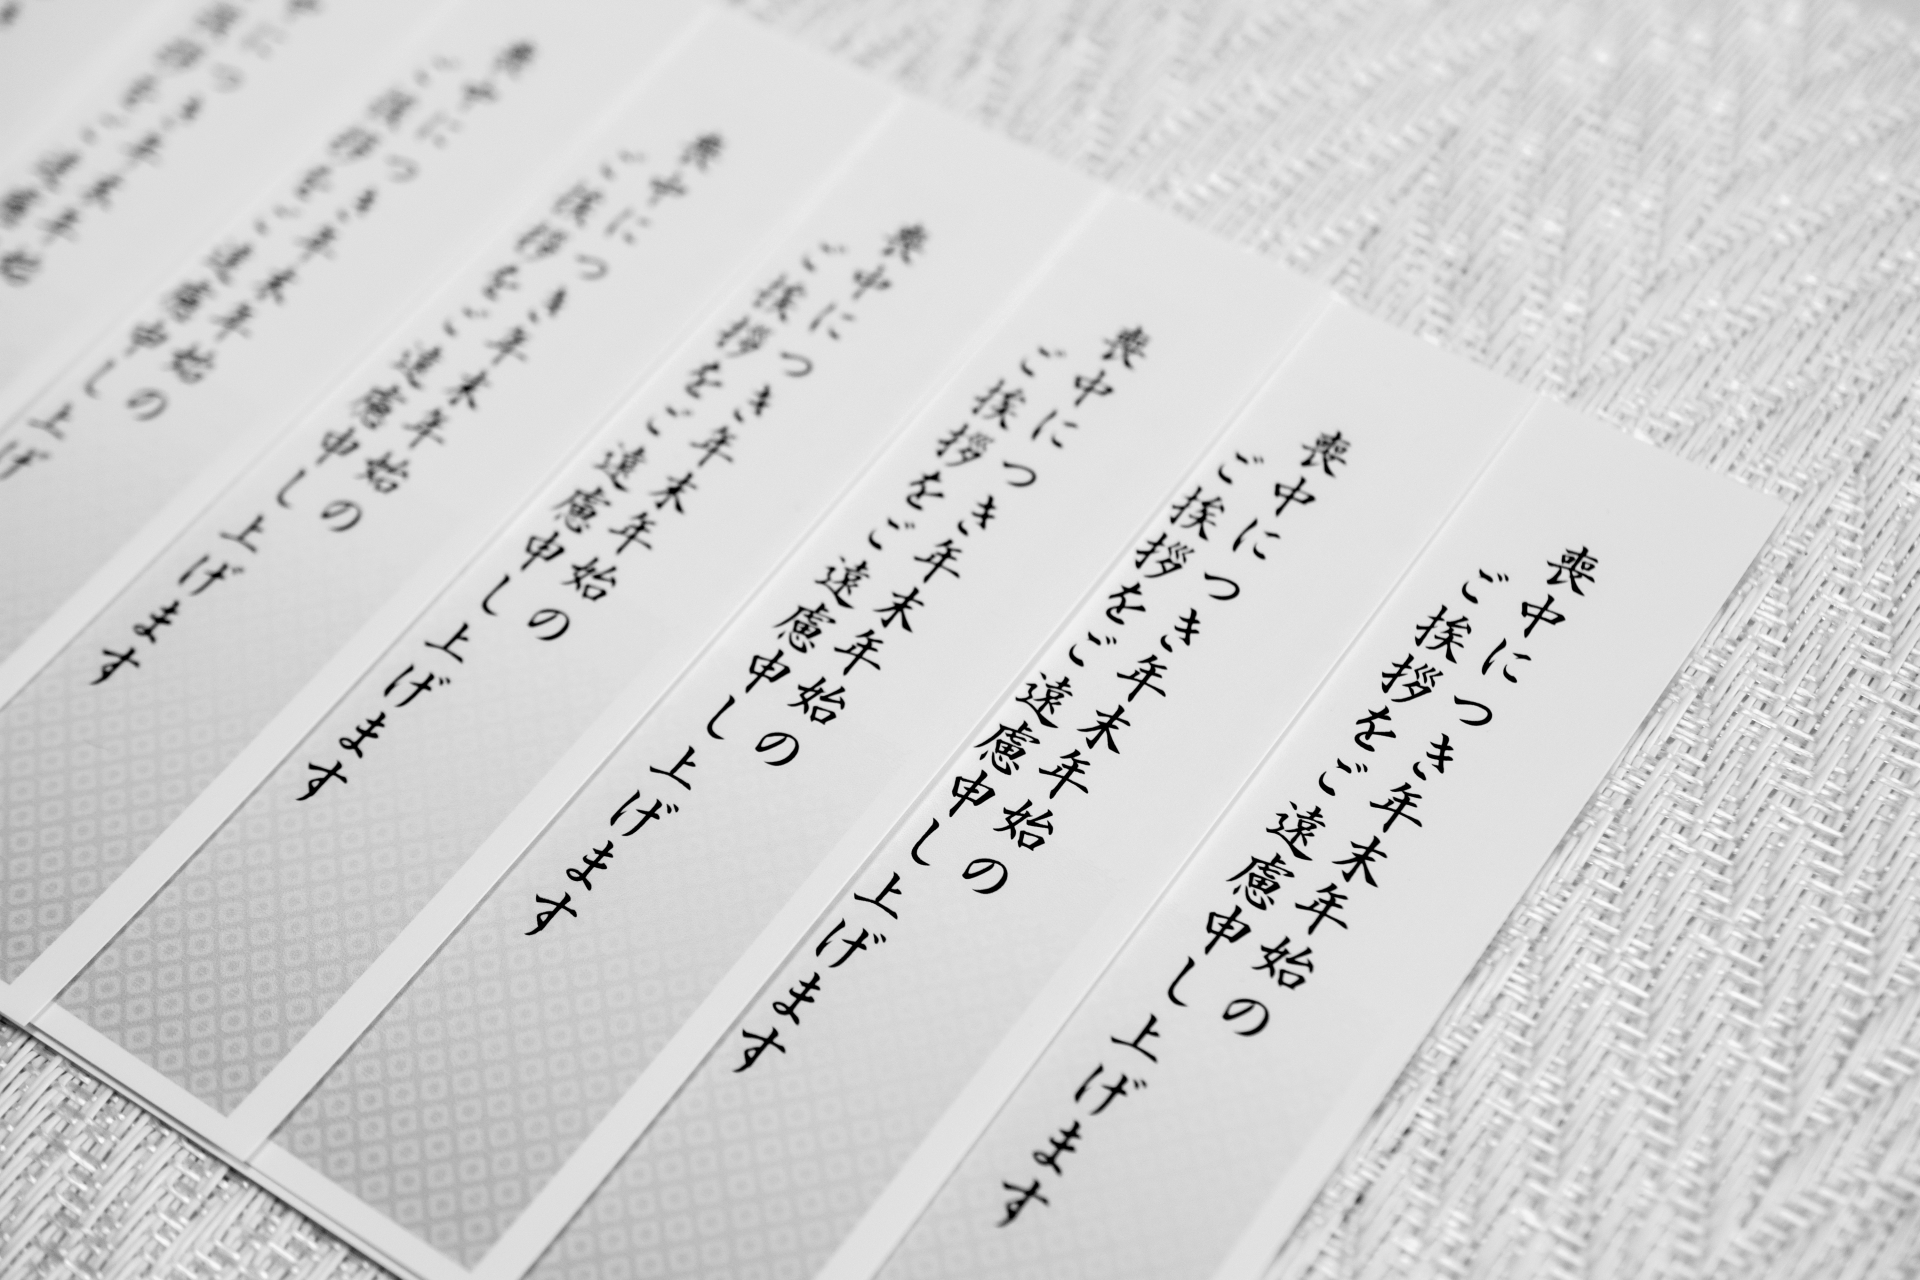 喪中につき年末年始の
ご挨拶をご遠慮申し上げます
喪中につき年末年始の
ご挨拶をご遠慮申し上げます
喪中につき年末年始の
ご挨拶をご遠慮申し上げます
喪中につき年末年始の
ご挨拶をご遠慮申し上げます
喪中につき年末年始の
ご挨拶をご遠慮申し上げます
喪中につき年末年始の
ご挨拶をご遠慮申し上げ
につき年末年始